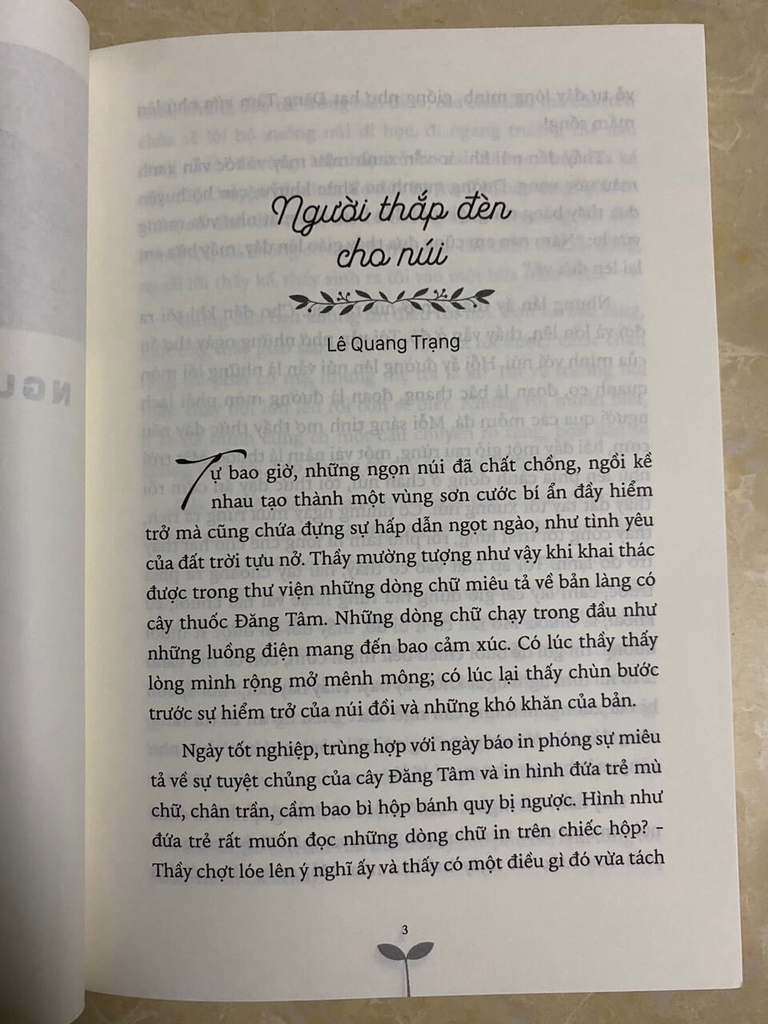 Người thắp đèn
cho núi
Lê Quang Trạng
Tự bao giờ, những ngọn núi đã chất chồng, ngồi kề
nhau tạo thành một vùng sơn cước bí ẩn đầy hiểm
trở mà cũng chứa đựng sự hấp dẫn ngọt ngào, như tình yêu
của đất trời tựu nở. Thầy mường tượng như vậy khi khai thác
được trong thư viện những dòng chữ miêu tả về bản làng có
cây thuốc Đăng Tâm. Những dòng chữ chạy trong đầu như
những luồng điện mang đến bao cảm xúc. Có lúc thầy thấy
lòng mình rộng mở mênh mông; có lúc lại thấy chùn bước
trước sự hiểm trở của núi đồi và những khó khăn của bản.
Ngày tốt nghiệp, trùng hợp với ngày báo in phóng sự miêu
tả về sự tuyệt chủng của cây Đăng Tâm và in hình đứa trẻ mù
chữ, chân trần, cầm bao bì hộp bánh quy bị ngược. Hình như
đứa trẻ rất muốn đọc những dòng chữ in trên chiếc hộp? –
Thầy chợt lóe lên ý nghĩ ấy và thấy có một điều gì đó vừa tách
3